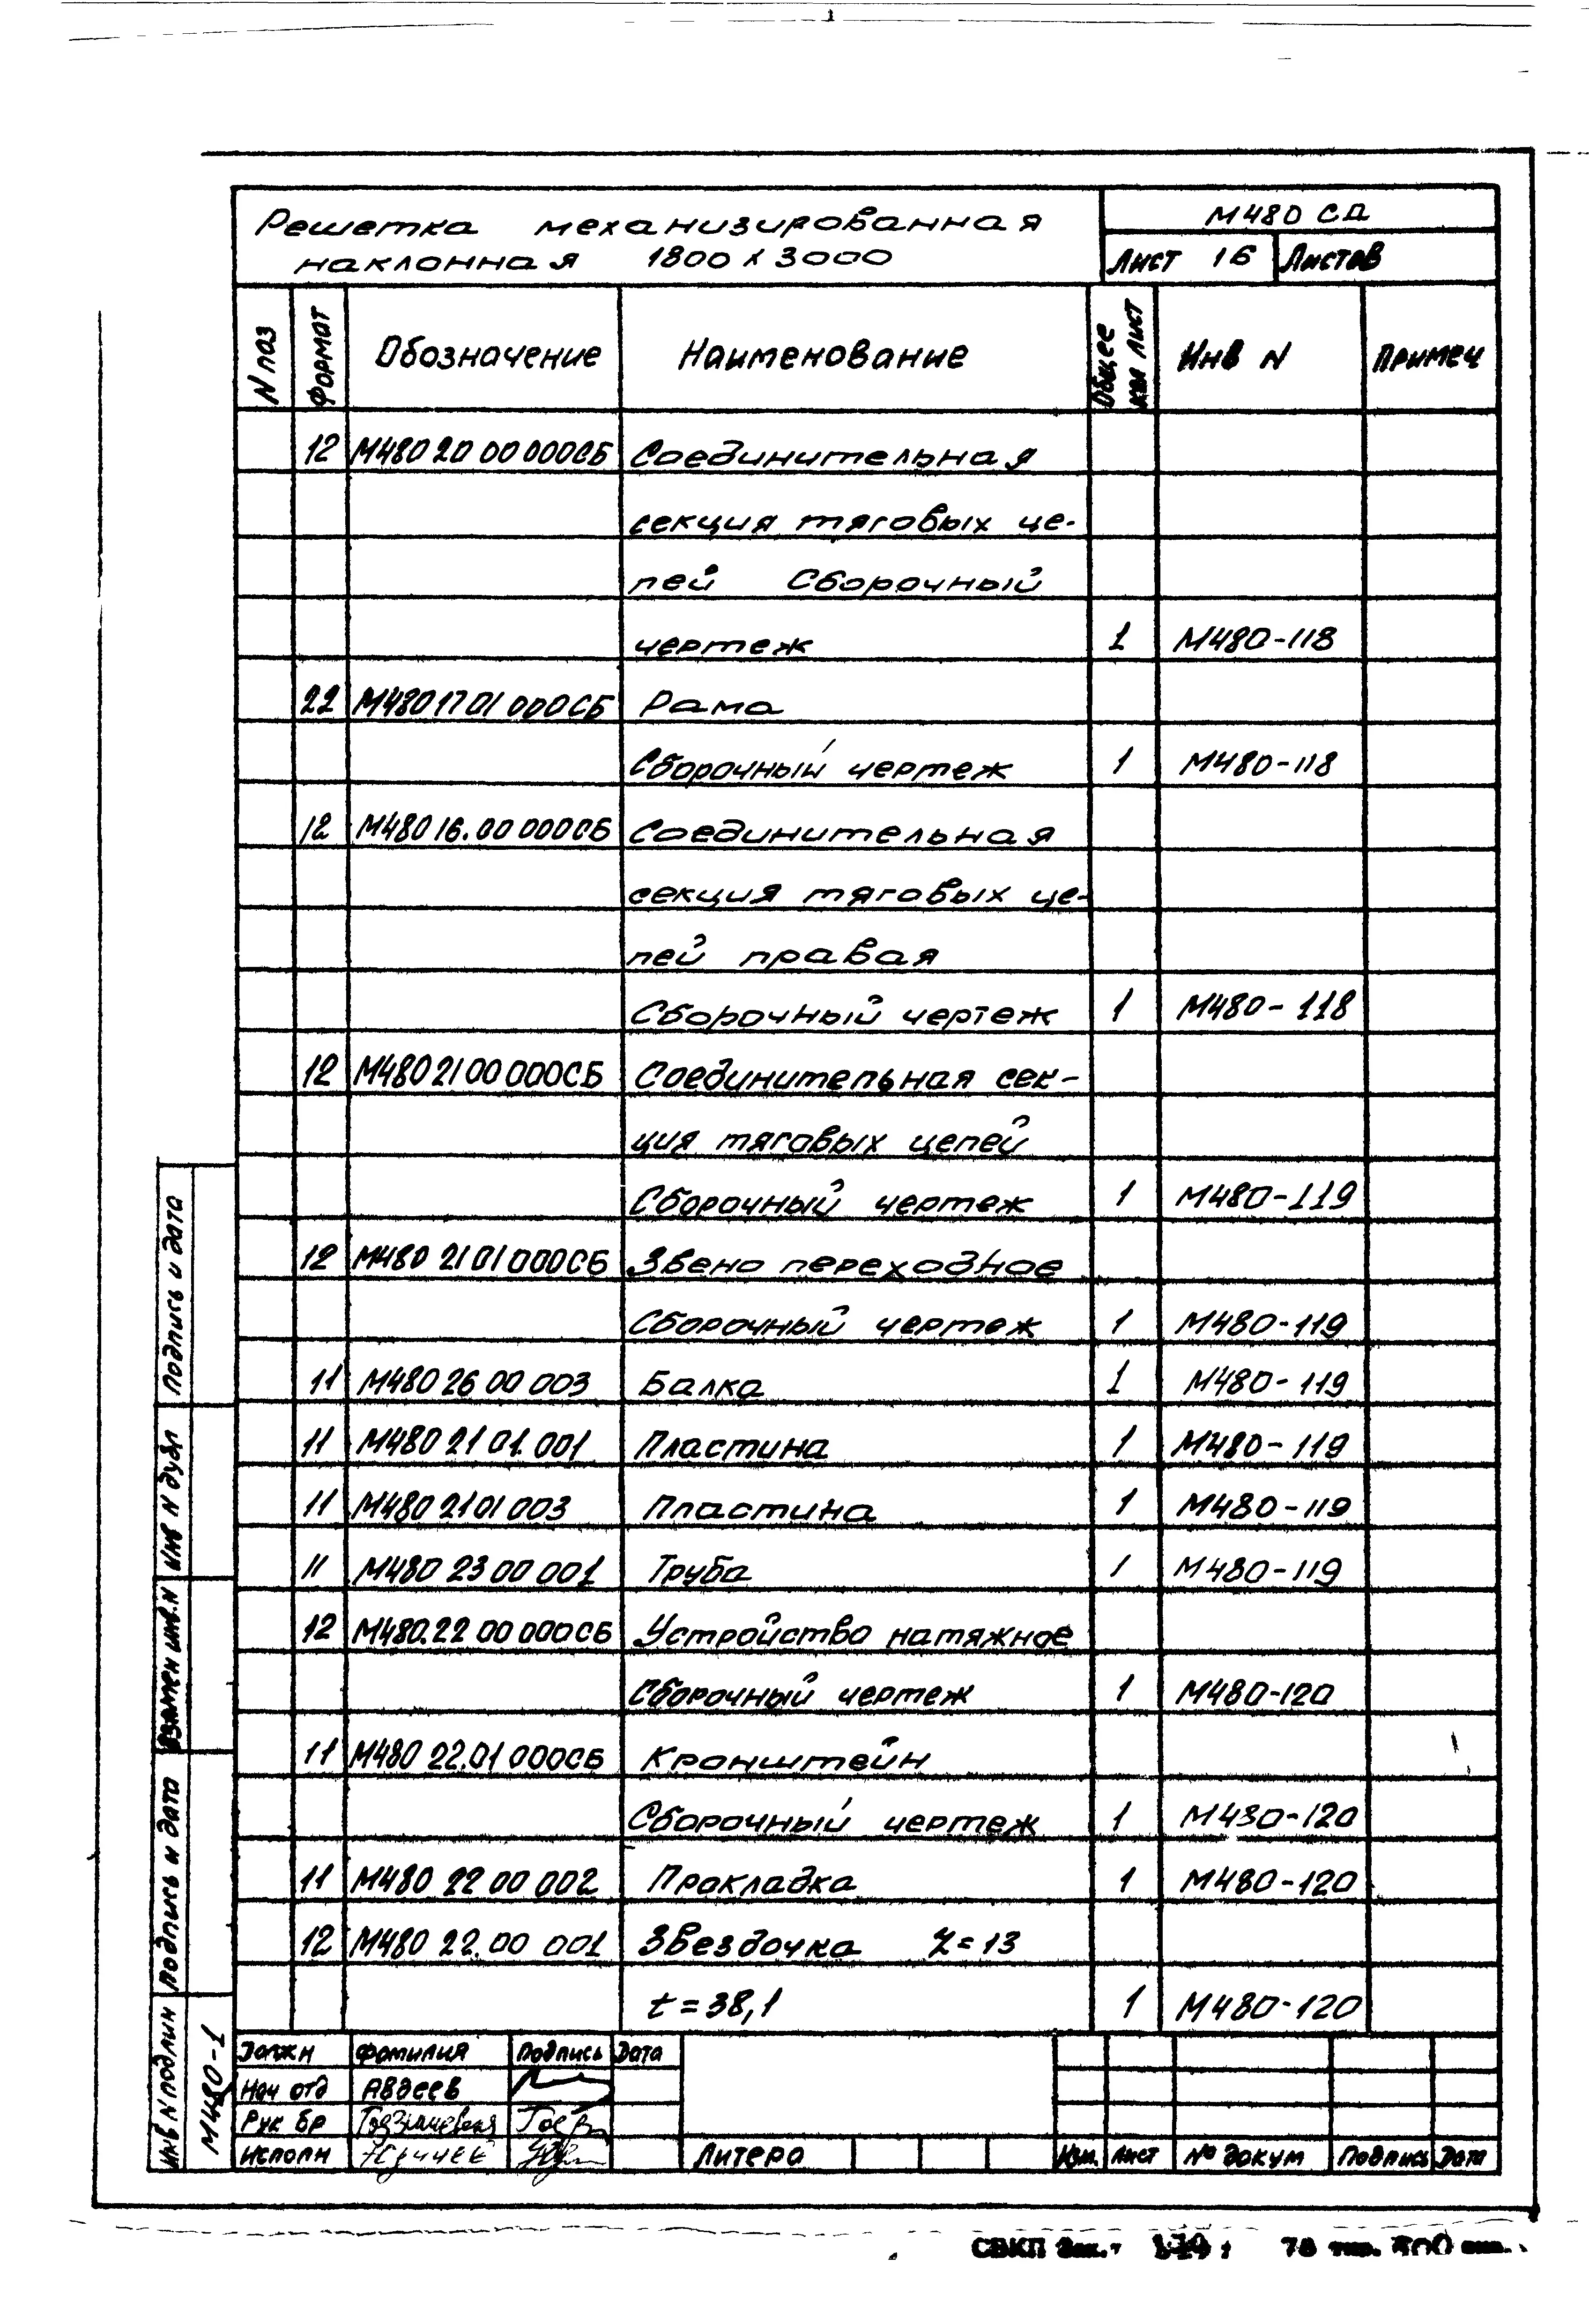 Решетка механизированная
наклонная 1800 х 3000
М480 СД
Лист 16 Листов
N поз Формат Обозначение Наименование Общее кол лист Инв N Примеч
12 М480 20 00 000СБ Соединительная
секция тяговых це-
пей Сборочный
чертеж 1 М480-118
22 М480 17 01 000СБ Рама
Сборочный чертеж 1 М480-118
12 М480 16.00 000СБ Соединительная
секция тяговых це-
пей правая
Сборочный чертеж 1 М480-118
12 М480 21 00 000СБ Соединительная сек-
ция тяговых цепей
Сборочный чертеж 1 М480-119
12 М480 21 01 000СБ Звено переходное
Сборочный чертеж 1 М480-119
11 М480 26 00 003 Балка 1 М480-119
11 М480 21 01.001 Пластина 1 М480-119
11 М480 21 01 003 Пластина 1 М480-119
11 М480 23 00 001 Труба 1 М480-119
12 М480.22 00 000СБ Устройство натяжное
Сборочный чертеж 1 М480-120
11 М480 22.01 000СБ Кронштейн
Сборочный чертеж 1 М480-120
11 М480 22 00 002 Прокладка 1 М480-120
12 М480 22.00 001 Звездочка Z=13
t=38,1 1 М480-120
Подпись и дата
Инв N дубл
Взамен инв.N
Подпись и дата
Инв N подлин
М480-1
Должн Фамилия Подпись Дата
Нач отд Авдеев
Рук бр
Исполн
Литера
Изм. Лист № докум Подпись Дата
СВКП Зак. 78 тир. 500 экз.